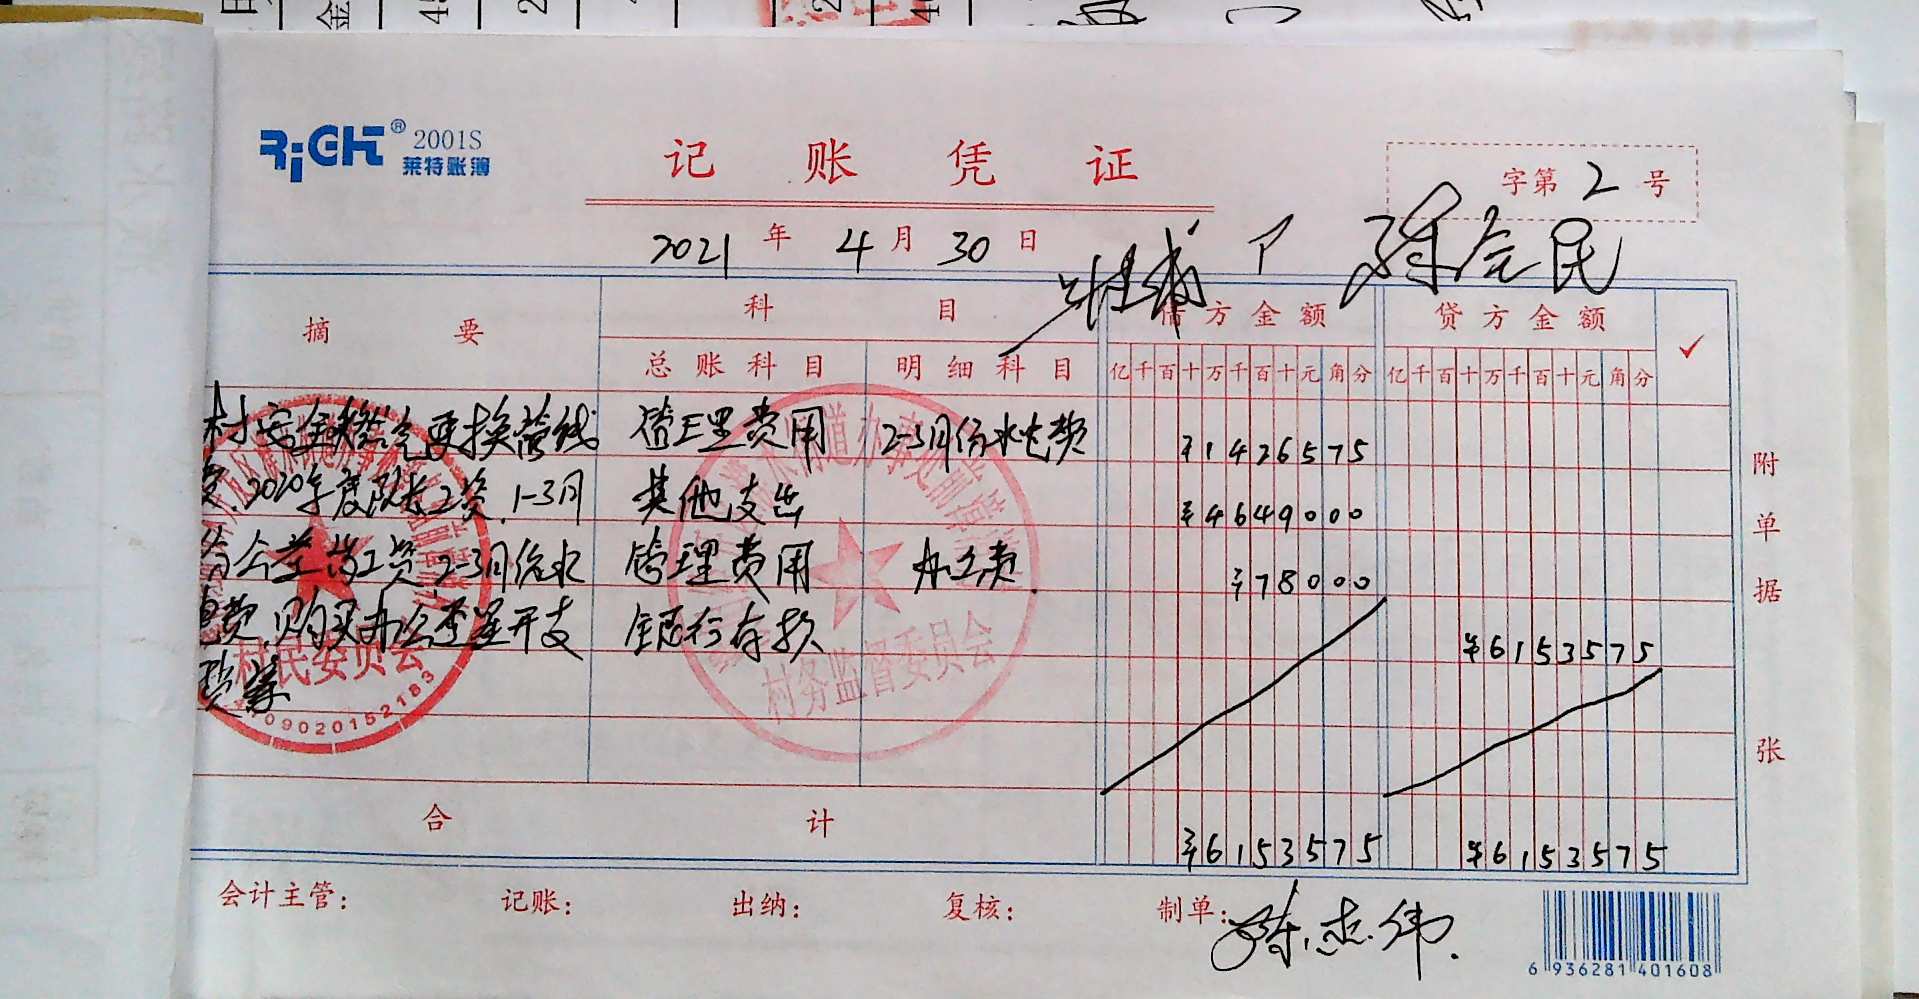 RiGHT® 2001S
莱特账簿
记账凭证
字第 2 号
2021 年 4 月 30 日
摘要 科目 借方金额 贷方金额 ✓
总账科目 明细科目 亿千百十万千百十元角分 亿千百十万千百十元角分
村 更换管线 管理费用 2-3月份水电费 ¥1426575
费.2020年度队长工资,1-3月 其他支出 ¥4649000
份公益岗工资2-3月份水 管理费用 办公费 ¥78000
电费.购买办公 开支 银行存款 ¥6153575
村民委员会
村务监督委员会
附单据 张
合计 ¥6153575 ¥6153575
会计主管: 记账: 出纳: 复核: 制单: 陈志伟
6 936281 401608